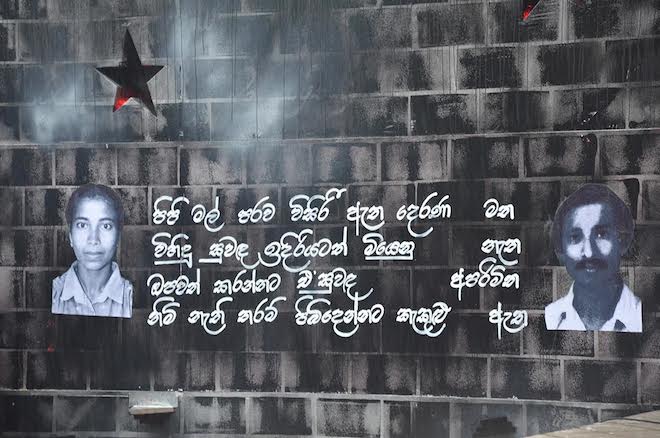 පිපි මල් පරව විසිරී ඇත දෙරණා මත
විහිදූ සුවඳ ඉදිරියටත් මියෙනු නැත
ඔපවත් කරන්නට ඒ'සුවඳ අපරිමිත
නිමි නැති තරම් පිබිදෙන්නට කැකුළු ඇත